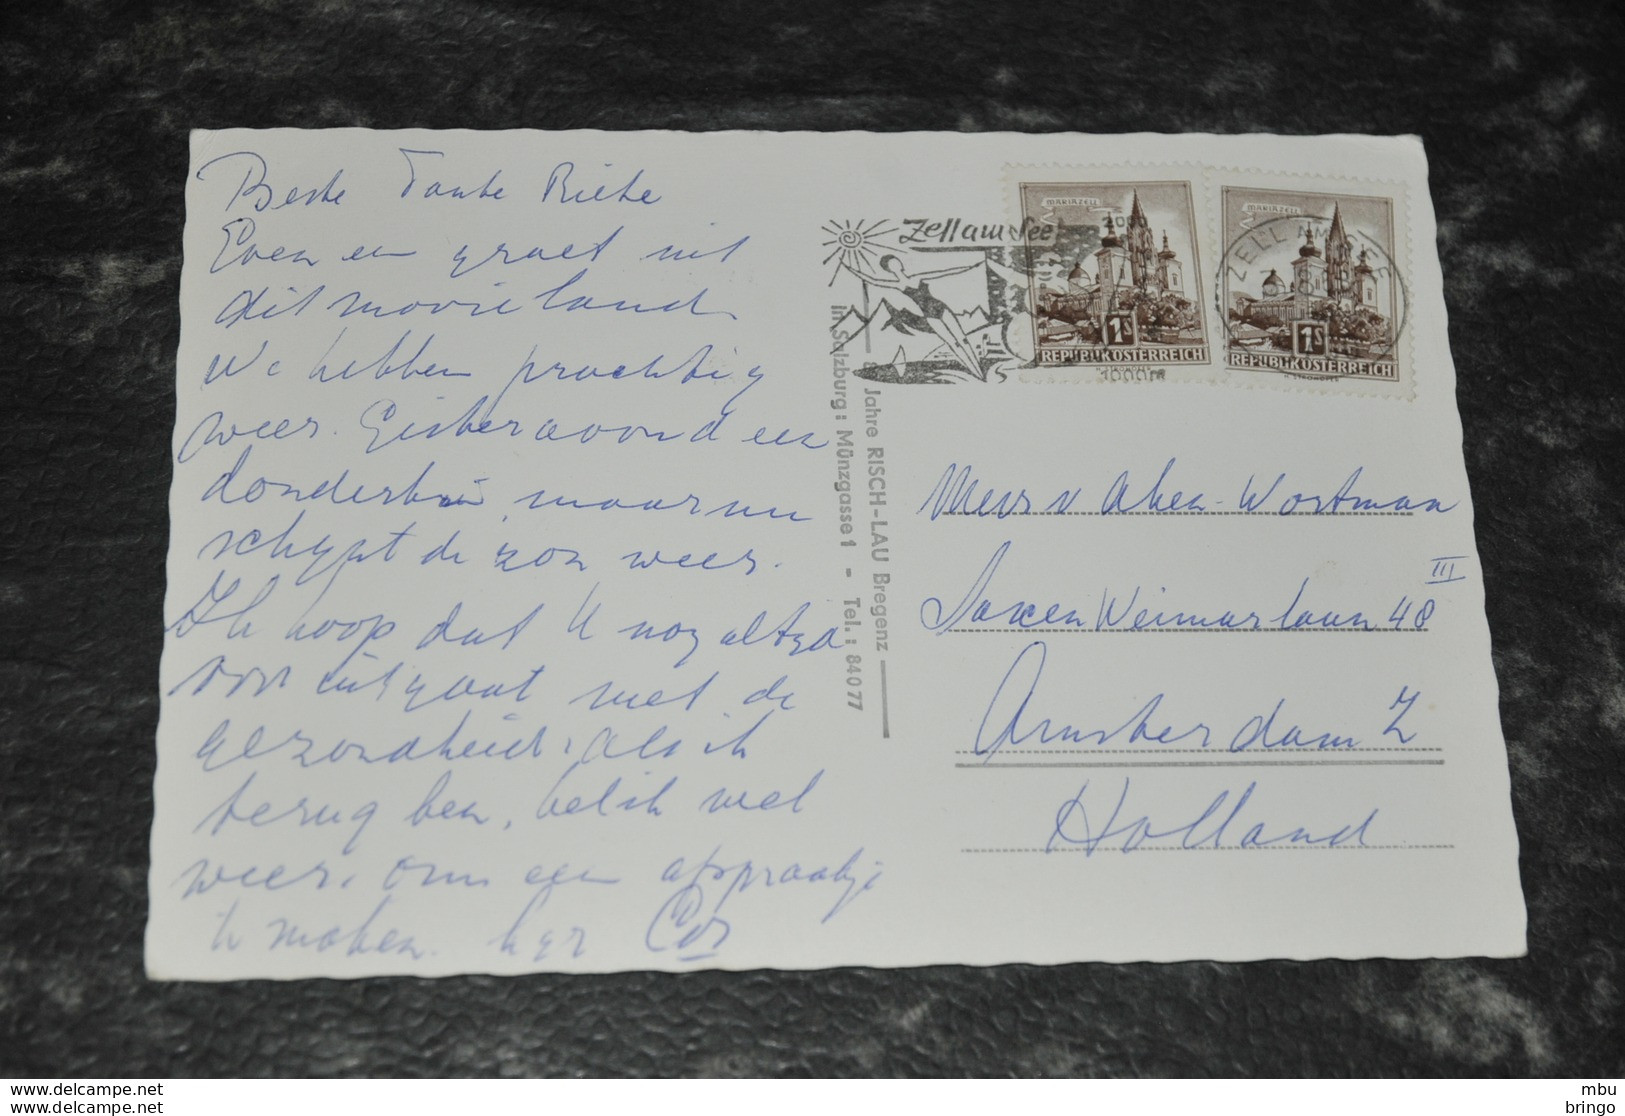 Beste Tante Rieke
Even een groet uit
dit mooie land
We hebben prachtig
weer. Gisteravond een
donderbui, maar nu
schynt de zon weer.
Ik hoop dat U nog altyd
voor uitgaat met de
gezondheid. Als ik
terug ben, bel ik wel
weer. om een afspraakje
te maken. Cor
Zell am See
MARIAZELL
1S
REPUBLIK ÖSTERREICH
MARIAZELL
ZELL AM SEE
1S
REPUBLIK ÖSTERREICH
Jahre RISCH-LAU Bregenz
in Salzburg: Münzgasse 1 - Tel.: 84077
Mevr v Aken-Wortman
Saxen Weimarlaan 48 III
Amsterdam Z
Holland
delcampe.net
delcampe.net
mbu
bringo